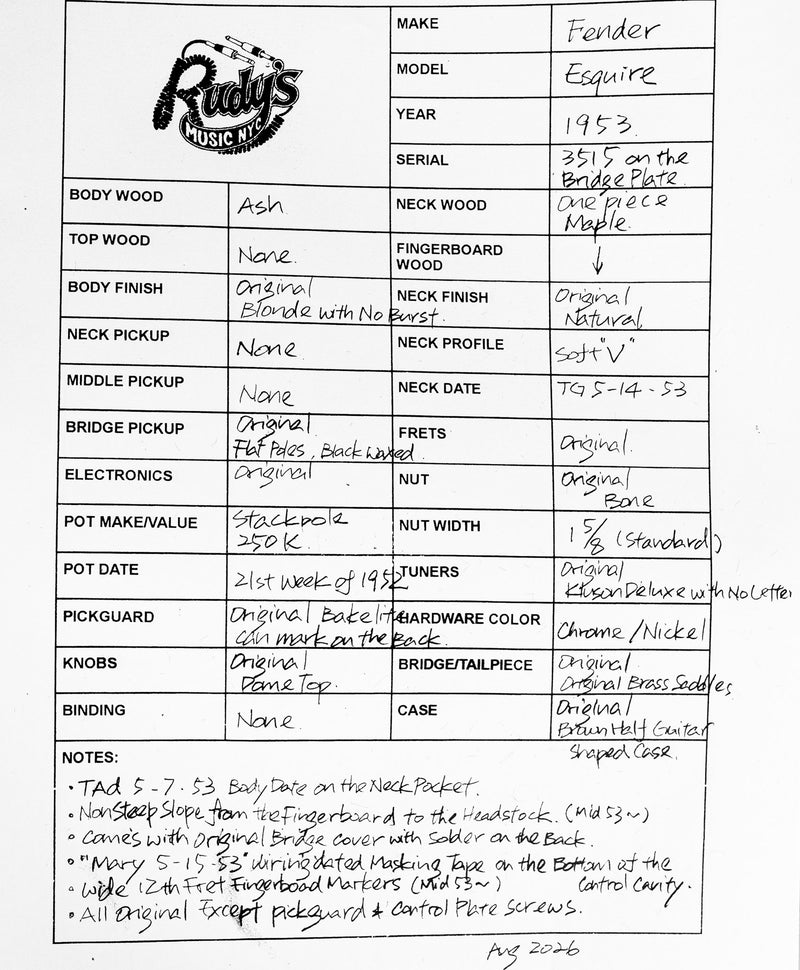 Rudy's
MUSIC NYC
MAKE Fender
MODEL Esquire
YEAR 1953.
SERIAL 3515 on the
Bridge Plate.
BODY WOOD Ash
NECK WOOD One piece
Maple.
TOP WOOD None.
FINGERBOARD
WOOD ↓
BODY FINISH Original
Blonde with No Burst.
NECK FINISH Original
Natural
NECK PICKUP None
NECK PROFILE Soft "V"
MIDDLE PICKUP None
NECK DATE TG 5-14-53
BRIDGE PICKUP Original
Flat Poles, Black Waxed
FRETS Original.
ELECTRONICS Original
NUT Original
Bone
POT MAKE/VALUE Stackpole
250K.
NUT WIDTH 1 5/8 (Standard)
POT DATE 21st Week of 1952
TUNERS Original
Kluson Deluxe with No Letter
PICKGUARD Original Bakelite
Can mark on the Back.
HARDWARE COLOR Chrome/Nickel
KNOBS Original
Dome Top.
BRIDGE/TAILPIECE Original
Original Brass Saddles
BINDING None.
CASE Original
Brown Half Guitar
Shaped Case.
NOTES:
• TAd 5-7-53 Body Date on the Neck Pocket.
• Non Steep Slope from the Fingerboard to the Headstock. (Mid 53~)
• Comes with Original Bridge cover with Solder on the Back.
• "Mary 5-15-53" wiring dated Masking Tape on the Bottom of the
Control Cavity.
• Wide 12th Fret Fingerboad Markers (Mid 53~)
• All Original Except pickguard & Control Plate Screws.
Aug 2026